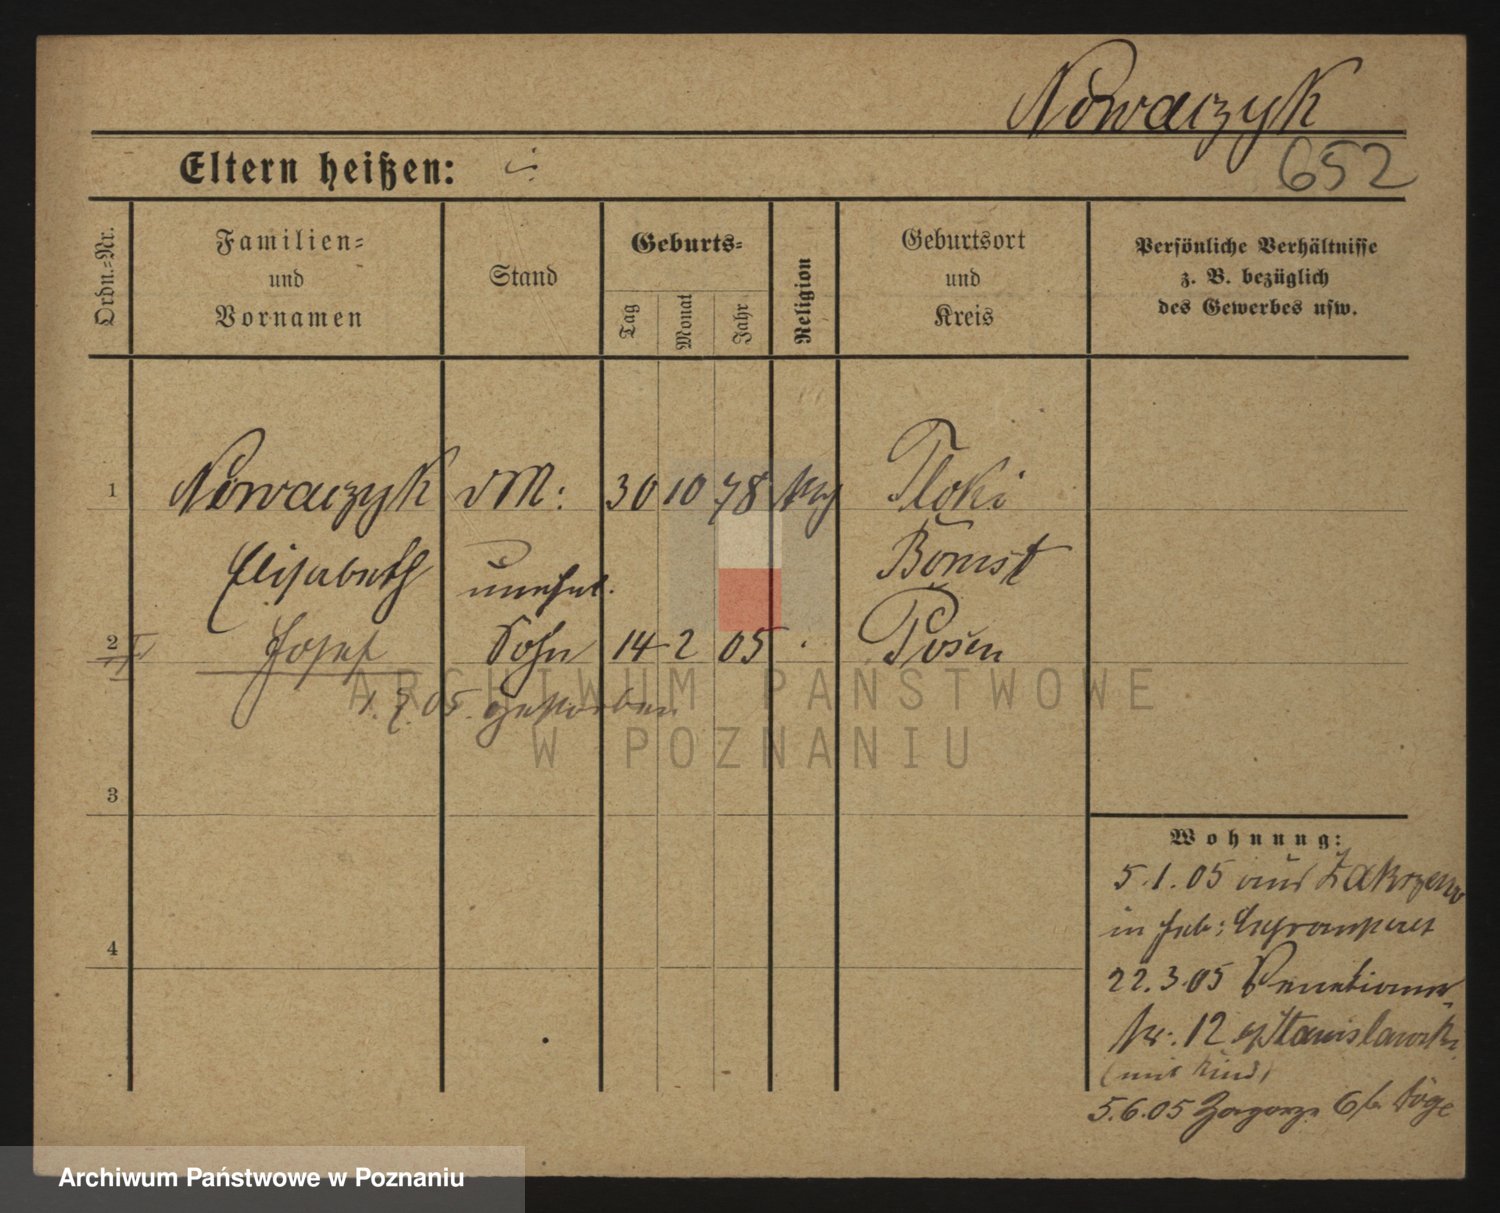 Nowaczyk
652
Eltern heißen:
Ordn.-Nr.
Familien-
und
Vornamen
Stand
Geburts-
Tag
Monat
Jahr
Religion
Geburtsort
und
Kreis
Persönliche Verhältnisse
z. B. bezüglich
des Gewerbes usw.
1 Nowaczyk 30 10 78 Tloki
Elisabeth unehel. Bomst
2 Josef Sohn 14 2 05 Posen
1. 7. 05. gestorben
3
4
Wohnung:
5.1.05 aus Zakrzewo
in
22.3.05
Nr. 12 Stanislawski
(mit Kind)
5.6.05 Zagorze 6
ARCHIWUM PAŃSTWOWE
W POZNANIU
Archiwum Państwowe w Poznaniu